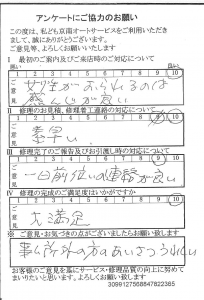 アンケートにご協力のお願い
この度は、私ども京南オートサービスをご利用いただき
まして、誠にありがとうございます。
ご意見等、よろしくお願いいたします
Ⅰ 最初のご案内及びご来店時のご対応について
悪い 良い
1 2 3 4 5 6 7 8 9 10
ご意見
女性がおられるのは
感じが良い
Ⅱ 修理のお見積、修理着工連絡の対応について
1 2 3 4 5 6 7 8 9 10
ご意見
素早い
Ⅲ 修理完了のご報告及びお引渡し時の対応について
1 2 3 4 5 6 7 8 9 10
ご意見
一日前位の連絡が良い
Ⅳ 修理の完成のご満足度はいかがですか
1 2 3 4 5 6 7 8 9 10
ご意見
大満足
※ ご意見・お気づきの点がございましたらお願い致します
事ム所外の方のあいさつうれしい
お客様のご意見を基にサービス・修理品質の向上に努めて
まいりたいと思います。よろしくお願い致します
3099127568847822365